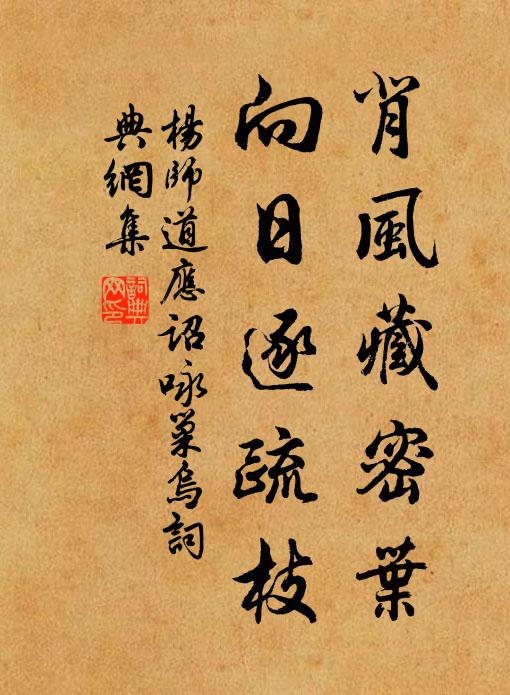 背風藏密葉
向日逐疏枝
楊師道應詔咏巢烏詞
典網集
詞典
网印